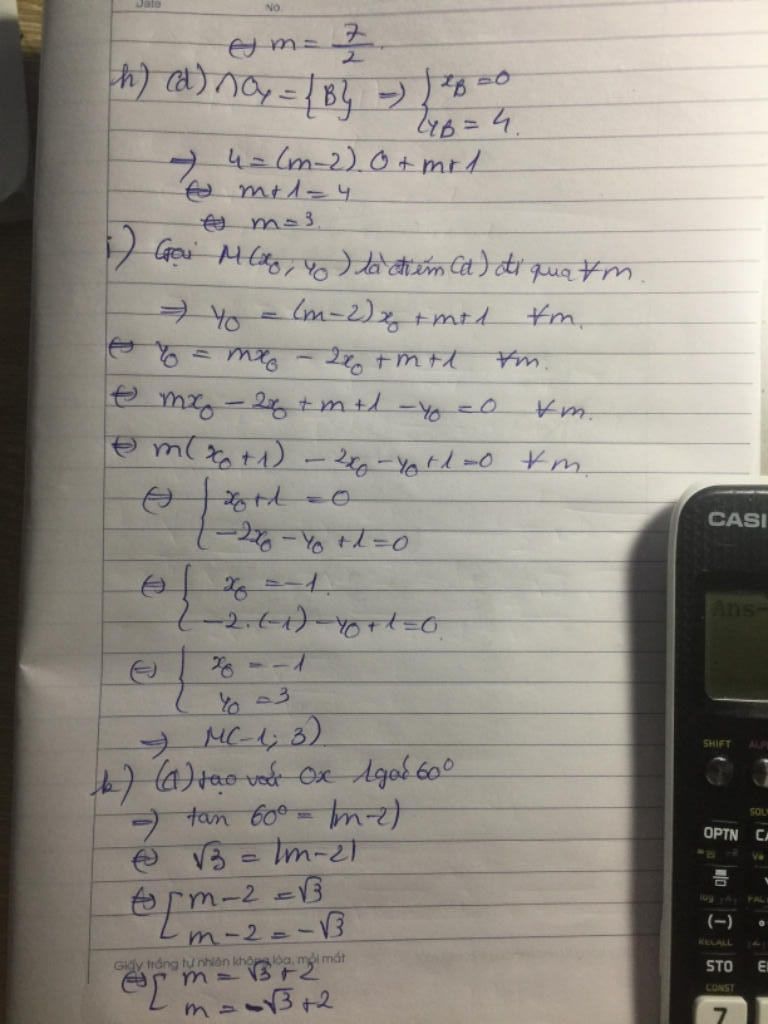 Date No.
⇔ m = 7/2.
h) (d) ∩ Oy = {B} ⇒ { x_B = 0
y_B = 4.
⇒ 4 = (m-2).0 + m+1
⇔ m+1 = 4
⇔ m = 3.
i) Gọi M(x₀; y₀) là điểm (d) đi qua ∀m.
⇒ y₀ = (m-2)x₀ + m+1 ∀m.
⇔ y₀ = mx₀ - 2x₀ + m+1 ∀m.
⇔ mx₀ - 2x₀ + m+1 - y₀ = 0 ∀m.
⇔ m(x₀+1) - 2x₀ - y₀ + 1 = 0 ∀m.
⇔ { x₀+1 = 0
-2x₀ - y₀ + 1 = 0
⇔ { x₀ = -1.
-2.(-1) - y₀ + 1 = 0.
⇔ { x₀ = -1
y₀ = 3
⇒ M(-1; 3).
k) (d) tạo với Ox 1 góc 60°
⇒ tan 60° = |m-2|
⇔ √3 = |m-2|
⇔ [ m-2 = √3
m-2 = -√3
Giấy trắng tự nhiên không lóa, mỏi mắt
⇔ [ m = √3+2
m = -√3+2
CASI
Ans-
SHIFT ALP
SOL
OPTN CA
(-)
RECALL
STO E
CONST
7